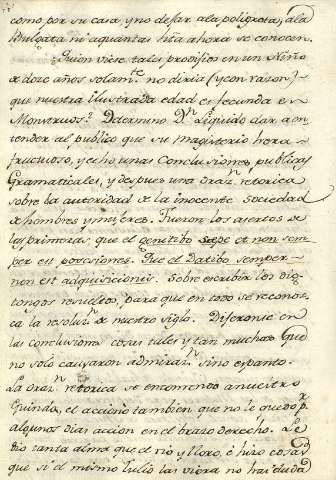 como por su casa, y no dejar a la poligrota, a la
Vulgata ni aquantas hta ahora se conocen.
Quien viere tales prodigios en un Niño
de doze años solam.te no diria (y con razon)
que nuestra ilustrada edad es fecunda en
Monstruos? Determino D.n Liquido dar a en-
tender al publico que su magisterio hera
fructuoso, y echó unas Conclusiones publicas
Gramaticales, y despues una Oraz.n retorica
sobre la autoridad de la inocente Sociedad
de hombres y mujeres. Fueron los asertos de
las primeras; que el genitibo sepe et non sem-
per est posesiones. Fue el Datibo semper
non est adquisicionis. Sobre escribir los dip-
tongos resueltos, para que en todo se reconos-
ca la resoluz.n de nuestro siglo. Dijeronse en
las conclusiones cosas tales y tan muchas que
no solo causaron admiraz.n sino espanto.
La Oraz.n retorica se encomendo a nuestro
el accionò tambien que no le quedo p.r
algunos dias accion en el brazo derecho. Le
dio tanta alma que el rio y lloro, è hizo cosas
que si el mismo Tulio las viera no hai duda